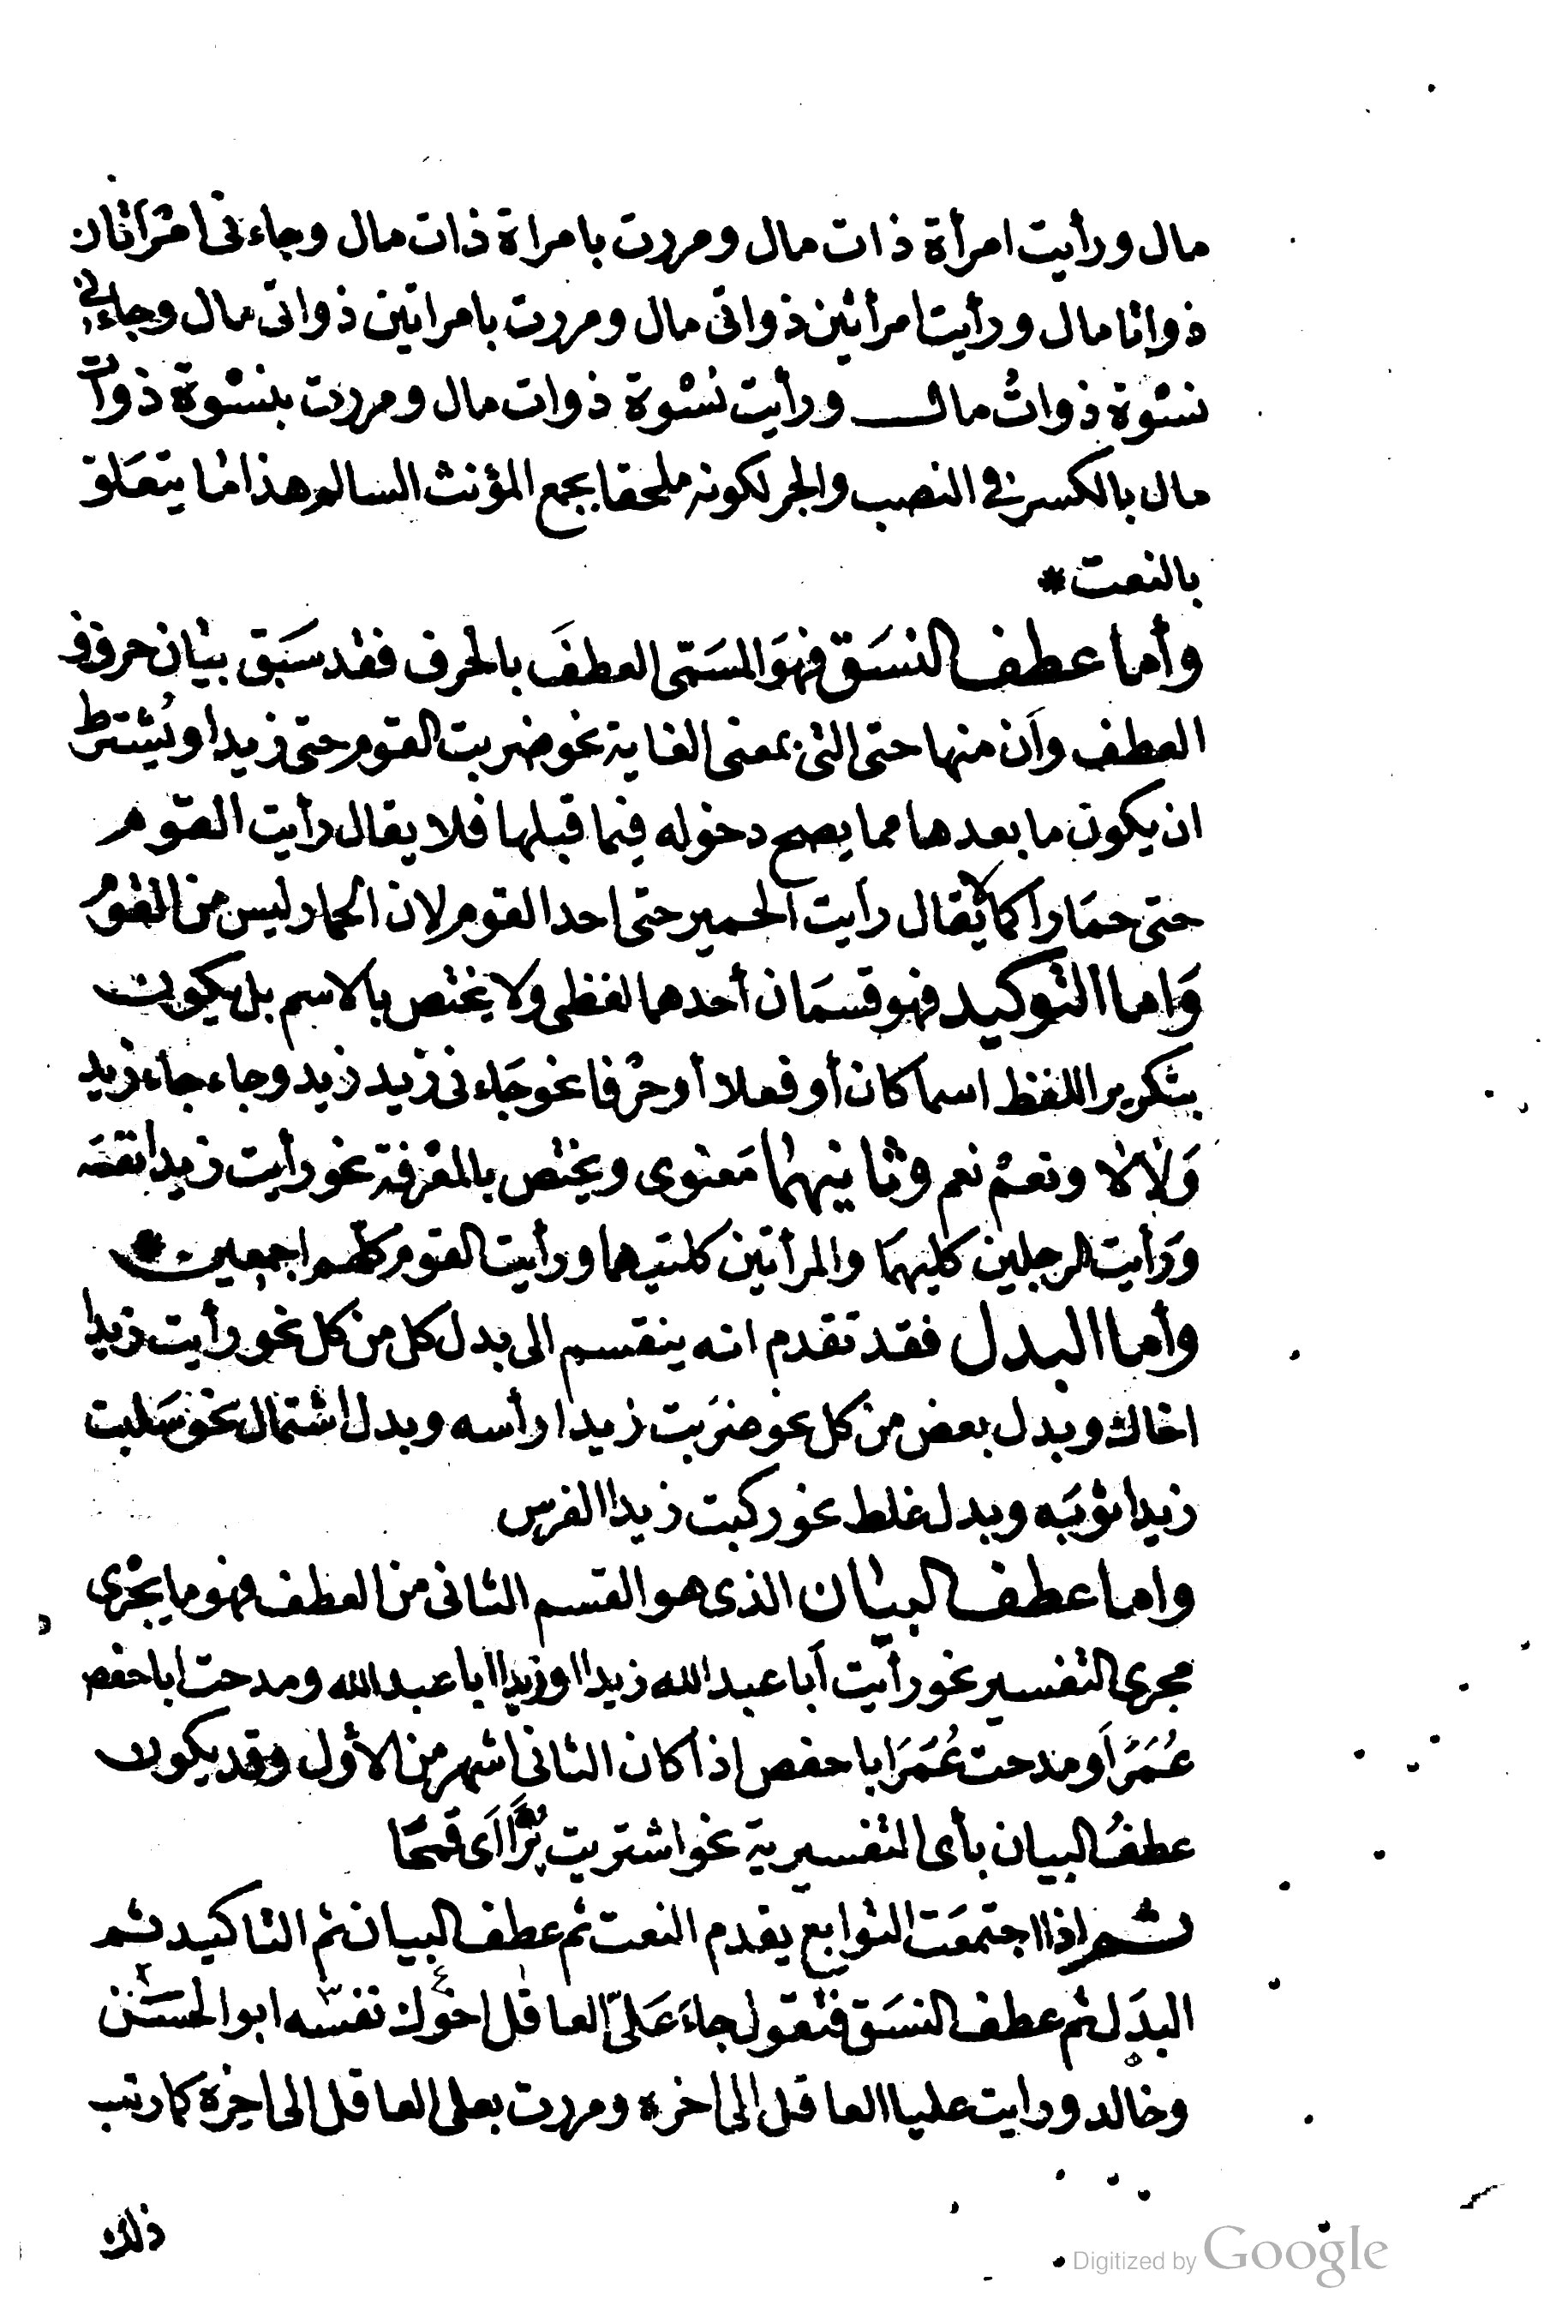 مال ورأيت امرأة ذات مال ومررت بامراة ذات مال وجاءنى امْرَأتان
ذواتا مال ورأيت امرأتين ذواتى مال ومررت بامراتين ذواتى مال وجاءنى
نسْوَة ذواتُ مال ورأيت نسْوة ذوات مال ومررت بنسْوة ذوات
مال بالكسر فى النصب والجر لكونه ملحقا بجمع المؤنث السالم هذا ما يتعَلق
بالنعت *
وأما عطف النسَق فهوَ المسَمّى العطفَ بالحرف فقد سَبَق بيان حروف
العطف وأن منها حتى التى بمعنى الغاية نحو ضربت القوم حتى زيدا ويُشترط
ان يكون ما بعدها مما يصح دخوله فيما قبلها فلا يقال رأيت القوم
حتى حمَارا كما لا يُقال رأيت الحمير حتى احد القوم لان الحمار ليس من القوم
وَاما التوكيد فهو قسمَان أحدهما لفظى ولا يختص بالاسم بل يكون
بتكرير اللفظ اسما كان أو فعلا أو حرْفا نحو جَاءنى زيد زيد وجاء جاء زيد
وَلا لا ونعَم نعم وثانيهما مَعنوى ويختص بالمعْرفة نحو رأيت زيدا نفسَه
وَرَأيت الرجلين كليهمَا والمرأتين كلتيهما ورأيت القوم كلهم اجمعين *
وأما البدل فقد تقدم انه ينقسم الى بدل كل من كل نحو رأيت زيدا
اخاك وبدل بعض من كل نحو ضرَبت زيدا رأسه وبدل اشتمال نحو سَلبت
زيدا ثوبَه وبدل غلط نحو ركبت زيدا الفرس
واما عطف البيان الذى هو القسم الثانى من العطف فهو ما يجْرى
مجرى التفسير نحو رأيت أبا عبد الله زيدا او زيدا ابا عبد الله ومدحت ابا حفص
عُمَرَ أو مدحت عُمَرَ ابا حفص اذا كان الثانى اشهر من الاوّل وقد يكون
عطفُ البيان بأى التفسيرية نحو اشتريت بُرًّا اَى قمحًا
ثم اذا اجتمعَت التوابع يقدم النعت ثم عطف البيان ثم التاكيد ثم
البدَل ثم عطف النسَق فتقول جاءَ عَلىّ العاقل اخوك نفسه ابو الحسَن
وخالد ورايت عليا العاقل الى اخره ومررت بعلى العاقل الى اخِرة كما رتب
ذلك
Digitized by Google